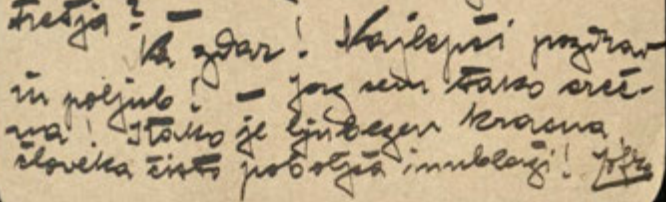 tretja? –
Na zdar! Najlepši pozdrav
in poljub! – jaz sem tako sreč-
na! Kako je ljubezen krasna,
človeka čisto poboljša in ublaži!